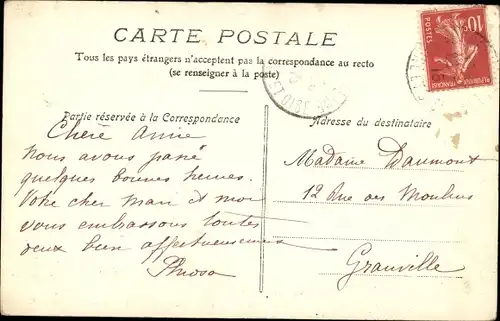 CARTE POSTALE
Tous les pays étrangers n'acceptent pas la correspondance au recto
(se renseigner à la poste)
Partie réservée à la Correspondance
Adresse du destinataire
Chère Amie
Nous avons passé
quelques bonnes heures.
Votre cher mari et moi
vous embrassons toutes
deux bien affectueusement
Madame Daumont
12 Rue des Moulins
Granville
10c
POSTES
REPUBLIQUE FRANÇAISE